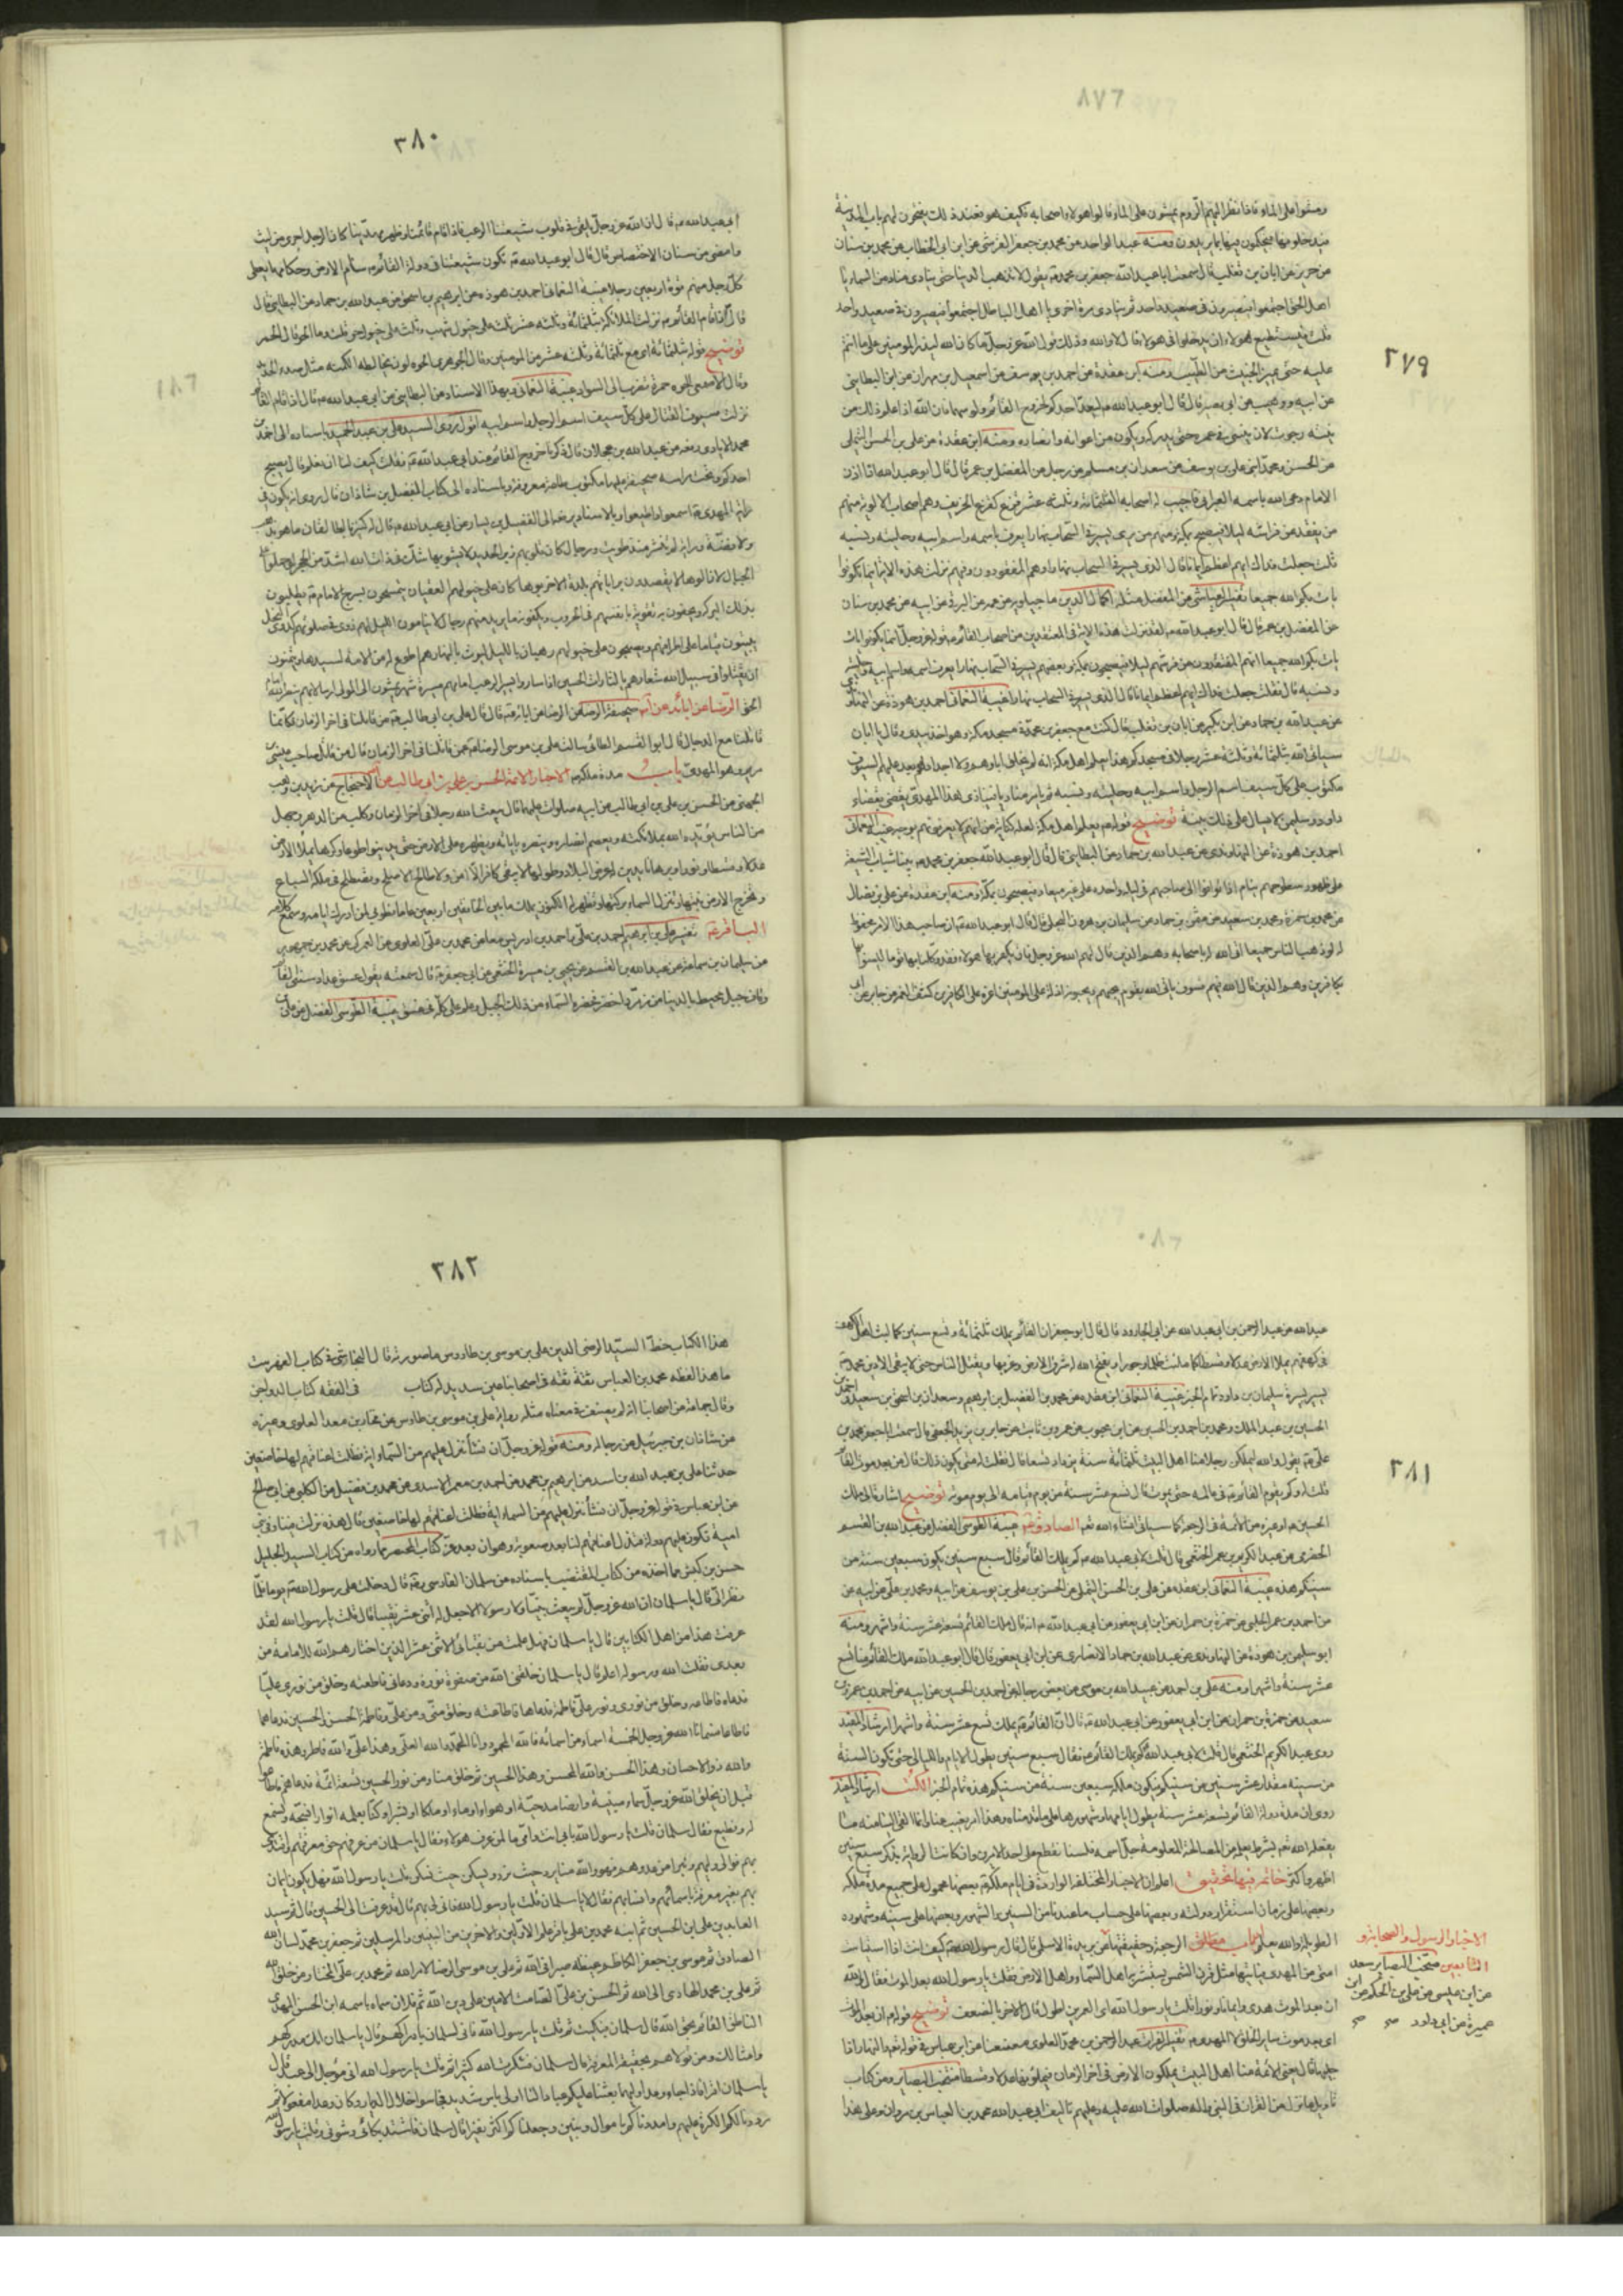 ٢٧٩
ومشوا على الماء فاذا نظر اليهم الروم يمشون على الماء قالوا هؤلاء اصحابه فكيف هو فعند ذلك يفتحون لهم باب المدينة
فيدخلونها فيحكمون فيها ما يريدون ومنه عبد الواحد عن محمد بن جعفر القرشي عن ابن ابي الخطاب عن محمد بن سنان
عن حريز عن ابان بن تغلب قال سمعت ابا عبد الله جعفر بن محمد يقول لا تذهب الدنيا حتى ينادي مناد من السماء يا
اهل الحق اجتمعوا فيصيرون في صعيد واحد ثم ينادي مرة اخرى يا اهل الباطل اجتمعوا فيصيرون في صعيد واحد
قلت فيستطيع هؤلاء ان يدخلوا في هؤلاء قال لا والله وذلك قول الله عز وجل ما كان الله ليذر المؤمنين على ما انتم
عليه حتى يميز الخبيث من الطيب ومنه ابن عقدة عن احمد بن يوسف عن اسمعيل بن مهران عن ابن البطايني
عن ابيه ووهيب عن ابي بصير قال قال ابو عبد الله ليعد احدكم لخروج القائم ولو سهما فان الله اذا علم ذلك من
نيته رجوت لان ينسئ في عمره حتى يدركه ويكون من اعوانه وانصاره ومنه ابن عقدة عن علي بن الحسن التيملي
عن الحسن ومحمد ابني علي بن يوسف عن سعدان بن مسلم عن رجل عن المفضل بن عمر قال قال ابو عبد الله اذا اذن
الامام دعى الله باسمه العبراني فاتيحت له اصحابه الثلثمائة وثلثة عشر قزع كقزع الخريف وهم اصحاب الالوية منهم
من يفقد من فراشه ليلا فيصبح بمكة ومنهم من يرى يسير في السحاب نهارا يعرف باسمه واسم ابيه وحليته ونسبه
قلت جعلت فداك ايهم اعظم ايمانا قال الذي يسير في السحاب نهارا وهم المفقودون وفيهم نزلت هذه الاية اينما تكونوا
يات بكم الله جميعا تفسير العياشي عن المفضل مثله اكمال الدين ماجيلويه عن عمه عن البرقي عن ابيه عن محمد بن سنان
عن المفضل بن عمر قال قال ابو عبد الله لقد نزلت هذه الاية في المفتقدين من اصحاب القائم قوله عز وجل اينما تكونوا
يات بكم الله جميعا انهم المفتقدون من فرشهم ليلا فيصبحون بمكة وبعضهم يسير في السحاب نهارا يعرف اسمه واسم ابيه وحليته
ونسبه قال فقلت جعلت فداك ايهم اعظم ايمانا قال الذي يسير في السحاب نهارا غيبة النعماني احمد بن هوذة عن النهاوندي
عن عبد الله بن حماد عن ابن بكير عن ابان بن تغلب قال كنت مع جعفر بن محمد في مسجد مكة وهو اخذ بيدي وقال يا ابان
سياتي الله بثلثمائة وثلثة عشر رجلا في مسجدكم هذا يعلم اهل مكة انه لم يخلق اباؤهم ولا اجدادهم بعد عليهم السيوف
مكتوب على كل سيف اسم الرجل واسم ابيه وحليته ونسبه ثم يامر مناديا فينادي هذا المهدي يقضي بقضاء
داود وسليمن لا يسال على ذلك بينة توضيح قوله يعلم اهل مكة لعله كناية عن انهم لا يعرفونهم بوجه غيبة النعماني
احمد بن هوذة عن النهاوندي عن عبد الله بن حماد عن البطايني قال قال ابو عبد الله جعفر بن محمد بينا شباب الشيعة
على ظهور سطوحهم نيام اذا توافوا الى صاحبهم في ليلة واحدة على غير ميعاد فيصبحون بمكة ومنه ابن عقدة عن علي بن فضال
عن محمد بن حمزة ومحمد بن سعيد عن عثمان بن حماد عن سليمان بن هرون العجلي قال قال ابو عبد الله ان صاحب هذا الامر محفوظ
له لو ذهب الناس جميعا اتى الله له باصحابه وهم الذين قال لهم الله عز وجل فان يكفر بها هؤلاء فقد وكلنا بها قوما ليسوا بها
بكافرين وهم الذين قال الله فيهم فسوف ياتي الله بقوم يحبهم ويحبونه اذلة على المؤمنين اعزة على الكافرين كشف الغمة عن جابر عن ابي
٣٨٠
ابي عبد الله قال ان الله عز وجل يلقي في قلوب شيعتنا الرعب فاذا قام قائمنا وظهر مهدينا كان الرجل اجرى من ليث
وامضى من سنان الاختصاص قال قال ابو عبد الله تكون شيعتنا في دولة القائم سنام الارض وحكامها يعطى
كل رجل منهم قوة اربعين رجلا غيبة النعماني احمد بن هوذة عن ابراهيم بن اسحق عن عبد الله بن حماد عن البطايني قال
توضيح قوله بثلثمائة اي مع ثلثمائة وثلثة عشر من المؤمنين وقال الجوهري الحوة لون يخالطه الكمتة مثل صدء الحديد
وقال الاصمعي الحوة حمرة تضرب الى السواد غيبة النعماني بهذا الاسناد عن البطايني عن ابي عبد الله قال اذا قام القائم
نزلت سيوف القتال على كل سيف اسم الرجل واسم ابيه اقول روى السيد علي بن عبد الحميد باسناده الى احمد بن
محمد الايادي رفعه عن عبد الله بن عجلان قال ذكرنا خروج القائم عند ابي عبد الله فقلت كيف لنا ان نعلم قال يصبح
احدكم وتحت راسه صحيفة عليها مكتوب طاعة معروفة وباسناده الى كتاب الفضل بن شاذان قال روى انه يكون في
راية المهدي اسمعوا واطيعوا وبالاسناد يرفعه الى الفضيل بن يسار عن ابي عبد الله قال له كنز بالطالقان ما هو بذهب
ولا فضة وراية لم تنشر منذ طويت ورجال كان قلوبهم زبر الحديد لا يشوبها شك في ذات الله اشد من الحجر لو حملوا على
الجبال لازالوها لا يقصدون براياتهم بلدة الا خربوها كان على خيولهم العقبان يتمسحون بسرج الامام يطلبون
بذلك البركة ويحفون به يقونه بانفسهم في الحروب ويكفونه ما يريد فيهم رجال لا ينامون الليل لهم دوي في صلوتهم كدوي النحل
يبيتون قياما على اطرافهم ويصبحون على خيولهم رهبان بالليل ليوث بالنهار هم اطوع له من الامة لسيدها
ان يقتلوا في سبيل الله شعارهم يا لثارات الحسين اذا ساروا يسير الرعب امامهم مسيرة شهر يمشون الى المولى ارسالا بهم ينصر الله امام
الحق الرضا عن ابائه صحيفة الرضا عن الرضا عن ابائه قال قال علي بن ابي طالب من قاتلنا في اخر الزمان فكانما
قاتلنا مع الدجال قال ابو القسم الطائي سالت علي بن موسى الرضا عمن قاتلنا في اخر الزمان قال من قاتل صاحب عيسى
مريم وهو المهدي باب مدة ملكه الاخبار الائمة الحسن بن علي بن ابي طالب الاحتجاج عن زيد بن وهب
الجهني عن الحسن بن علي بن ابي طالب عن ابيه صلوات عليهما قال يبعث الله رجلا في اخر الزمان وكلب من الدهر وجهل
من الناس يؤيده الله بملائكته ويعصم انصاره وينصره باياته ويظهره على الارض حتى يدينوا طوعا وكرها يملا الارض
عدلا وقسطا ونورا وبرهانا يدين له عرض البلاد وطولها لا يبقى كافر الا امن ولا طالح الا صلح وتصطلح في ملكه السباع
وتخرج الارض نبتها وتنزل السماء بركتها وتظهر له الكنوز يملك ما بين الخافقين اربعين عاما فطوبى لمن ادرك ايامه وسمع كلامه
الباقر تفسير علي بن ابرهيم احمد بن علي واحمد بن ادريس معا عن محمد بن احمد العلوي عن العمركي عن محمد بن جمهور
عن سليمان بن سماعة عن عبد الله بن القسم عن يحيى بن ميسرة الخثعمي عن ابي جعفر قال سمعته يقول عسق عداد سني القائم
وقاف جبل محيط بالدنيا من زمرد اخضر خضرة السماء من ذلك الجبل وعلم علي كله في عسق غيبة الطوسي الفضل عن علي بن
٣٨١
عبد الله عن عبد الرحمن بن ابي عبد الله عن ابي الجارود قال قال ابو جعفر ان القائم يملك ثلثمائة وتسع سنين كما لبث اهل الكهف
في كهفهم يملا الارض عدلا وقسطا كما ملئت ظلما وجورا ويفتح الله له شرق الارض وغربها ويقتل الناس حتى لا يبقى الا دين محمد
يسير بسيرة سليمان بن داود تمام الخبر غيبة النعماني ابن عقدة عن محمد بن الفضل بن ابرهيم وسعدان بن اسحق بن سعيد واحمد بن
الحسين بن عبد الملك ومحمد بن احمد بن الحسن عن ابن محبوب عن عمرو بن ثابت عن جابر بن يزيد الجعفي قال سمعت ابا جعفر محمد بن
علي يقول والله ليملكن رجل منا اهل البيت ثلثمائة سنة يزداد تسعا قال فقلت له متى يكون ذلك قال من بعد موت القائم
قلت له وكم يقوم القائم في عالمه حتى يموت قال تسع عشر سنة من يوم قيامه الى يوم موته توضيح اشارة الى ملك
الحسين او غيره من الائمة في الرجعة كما سياتي انشاء الله تعالى الصادق غيبة الطوسي الفضل عن عبد الله بن القسم
الحضرمي عن عبد الكريم بن عمر الخثعمي قال قلت لابي عبد الله كم يملك القائم قال سبع سنين يكون سبعين سنة من
سنيكم هذه غيبة النعماني ابن عقدة عن علي بن الحسن التيملي عن الحسن بن علي بن يوسف عن ابيه ومحمد بن علي عن ابيه عن
عن احمد بن عمر الحلبي عن حمزة بن حمران عن ابن ابي يعفور عن ابي عبد الله انه قال ملك القائم تسعة عشر سنة واشهر ومنه
ابو سليمن بن هوذة عن النهاوندي عن عبد الله بن حماد الانصاري عن ابن ابي يعفور قال قال ابو عبد الله ملك القائم منا تسع
عشر سنة واشهرا ومنه علي بن احمد عن عبيد الله بن موسى عن بعض رجاله عن احمد بن الحسين عن ابيه عن احمد بن عمر بن
سعيد عن حمزة بن حمران عن ابن ابي يعفور عن ابي عبد الله قال ان القائم يملك تسع عشر سنة واشهرا ارشاد المفيد
روى عبد الكريم الخثعمي قال قلت لابي عبد الله كم يملك القائم فقال سبع سنين يطول الايام والليالي حتى تكون السنة
من سنيه مقدار عشر سنين من سنيكم فيكون ملكه سبعين سنة من سنيكم هذه تمام الخبر ارشاد المفيد
روى ان مدة دولة القائم تسعة عشر سنة يطول ايامها وشهورها على ما قدمناه وهذا امر يغيب عنا وانما القي الينا منه ما
يفعله الله تعالى بشرط يعلمه من المصالح المعلومة جل اسمه فلسنا نقطع على احد الامرين وان كانت الرواية بذكر سبع سنين
اظهر واكثر خاتمة فيها تحقيق اعلم ان الاخبار المختلفة الواردة في ايام ملكه بعضها محمول على جميع مدة ملكه
وبعضها على زمان استقرار دولته وبعضها على حساب ما عندنا من السنين والشهور وبعضها على سنيه وشهوره
الطويلة والله يعلم باب مطلق الرجعة وحقيقتها عن بريدة الاسلمي قال قال رسول الله كيف انت اذا استياست
امتي من المهدي فياتيها مثل قرن الشمس يستبشر به اهل السماء واهل الارض فقلت يا رسول الله بعد الموت فقال والله
ان بعد الموت هدى وايمانا ونورا قلت يا رسول الله اي العمرين اطول قال الاخر بالضعف توضيح قوله ان بعد الموت
اي بعد موت ساير الخلق لا المهدي تفسير الفرات عبد الرحمن بن محمد العلوي معنعنا عن ابن عباس في قوله تعالى والنهار اذا
جليها قال يعني الائمة منا اهل البيت يملكون الارض في اخر الزمان فيملئونها عدلا وقسطا منتخب البصاير ومن كتاب
تاويل ما نزل من القران في النبي واله صلوات الله عليه وعليهم تاليف ابي عبد الله محمد بن العباس بن مروان وعلى هذا
الاخبار الرسول والصحابة و
التابعين منتخب البصاير سعد
عن ابن عيسى عن علي بن الحكم عن ابن
عميرة عن ابي داود صح صح
٣٨٢
هذا الكتاب خط السيد الرضي الدين علي بن موسى بن طاووس ما صورته قال النجاشي في كتاب الفهرست
ما هذا لفظه محمد بن العباس ثقة ثقة في اصحابنا عين سديد له كتاب في الفقه كتاب الدواجن
وقال جماعة من اصحابنا انه لم يصنف في معناه مثله رواية علي بن موسى بن طاوس عن فخار بن معد العلوي وغيره
عن شاذان بن جبرئيل عن رجاله ومنه قوله عز وجل ان نشأ ننزل عليهم من السماء اية فظلت اعناقهم لها خاضعين
حدثنا علي بن عبد الله بن اسد عن ابرهيم بن محمد عن احمد بن معمر الاسدي عن محمد بن فضيل عن الكلبي عن ابي صالح
عن ابن عباس في قوله عز وجل ان نشأ ننزل عليهم من السماء اية فظلت اعناقهم لها خاضعين قال هذه نزلت فينا وفي بني
امية تكون عليهم دولة فتذل اعناقهم لنا بعد صعوبة وهوان بعد عز كتاب المحتضر مما رواه من كتاب السيد الجليل
حسن بن كبش مما اخذه من كتاب المقتضب باسناده عن سلمان الفارسي قال دخلت على رسول الله يوما فلما
نظر الي قال يا سلمان ان الله عز وجل لم يبعث نبيا ولا رسولا الا جعل له اثنى عشر نقيبا قال قلت يا رسول الله لقد
عرفت هذا من اهل الكتابين قال يا سلمان فهل علمت من نقبائي الاثنى عشر الذين اختارهم الله للامامة من
بعدي فقلت الله ورسوله اعلم قال يا سلمان خلقني الله من صفوة نوره ودعاني فاطعته وخلق من نوري عليا
فدعاه فاطاعه وخلق من نوري ونور علي فاطمة فدعاها فاطاعته وخلق مني ومن علي وفاطمة الحسن والحسين فدعاهما
فاطاعاه فسمانا الله عز وجل بخمسة اسماء من اسمائه فالله المحمود وانا المحمد والله العلي وهذا علي والله فاطر وهذه فاطمة
والله ذو الاحسان وهذا الحسن والله المحسن وهذا الحسين ثم خلق منا ومن نور الحسين تسعة ائمة فدعاهم فاطاعوه
قبل ان يخلق الله عز وجل سماء مبنية وارضا مدحية او هواء او ماء او ملكا او بشرا وكنا بعلمه انوارا نسبحه ونسمع
له ونطيع فقال سلمان قلت يا رسول الله بابي انت وامي ما لمن عرف هؤلاء فقال يا سلمان من عرفهم حق معرفتهم واقتدى
بهم فوالى وليهم وتبرا من عدوهم فهو والله منا يرد حيث نرد ويسكن حيث نسكن قلت يا رسول الله فهل يكون ايمان
بهم بغير معرفة باسمائهم وانسابهم فقال لا يا سلمان قلت يا رسول الله فانى لي بهم قال قد عرفت الى الحسين قال ثم سيد
العابدين علي بن الحسين ثم ابنه محمد بن علي باقر علم الاولين والاخرين من النبيين والمرسلين ثم جعفر بن محمد لسان الله
الصادق ثم موسى بن جعفر الكاظم غيظه صبرا في الله ثم علي بن موسى الرضا لامر الله ثم محمد بن علي المختار من خلق الله
ثم علي بن محمد الهادي الى الله ثم الحسن بن علي الصامت الامين على دين الله ثم فلان سماه باسمه ابن الحسن المهدي
الناطق القائم بحق الله قال سلمان فبكيت ثم قلت يا رسول الله فانى لسلمان بادراكهم قال يا سلمان انك مدركهم
وامثالك ومن تولاهم بحقيقة المعرفة قال سلمان فشكرت الله كثيرا ثم قلت يا رسول الله اني مؤجل الى عهدهم قال
يا سلمان اقرأ فاذا جاء وعد اوليهما بعثنا عليكم عبادا لنا اولي باس شديد فجاسوا خلال الديار وكان وعدا مفعولا ثم
رددنا لكم الكرة عليهم وامددناكم باموال وبنين وجعلناكم اكثر نفيرا قال سلمان فاشتد بكائي وشوقي وقلت يا رسول الله